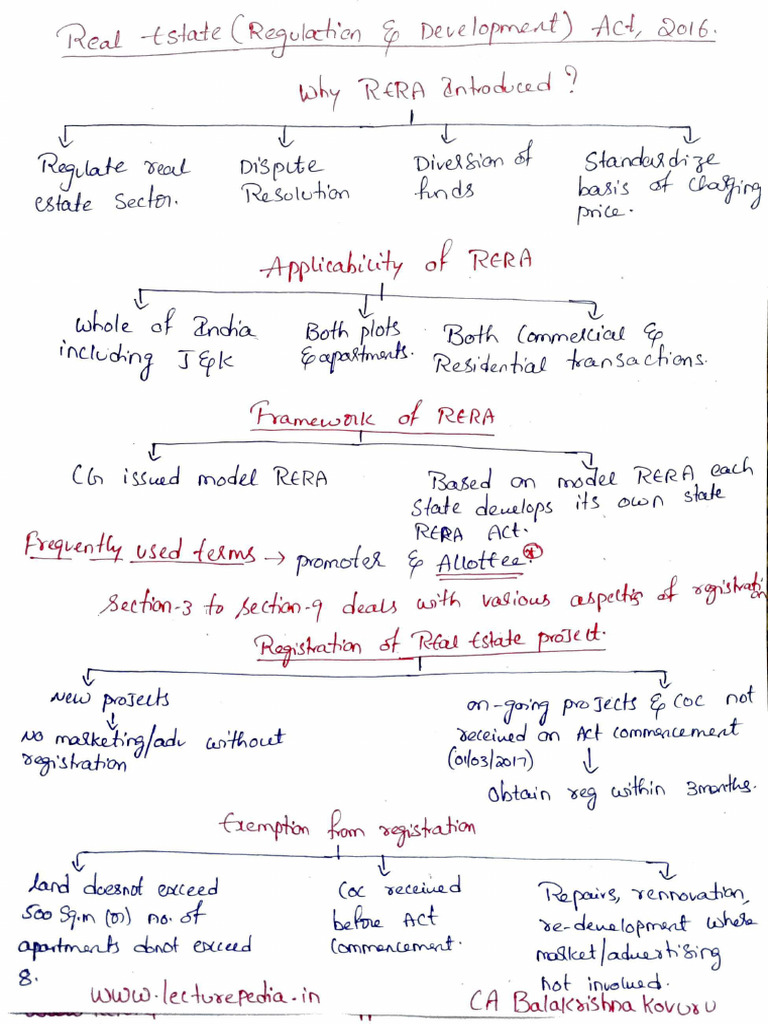 Real Estate (Regulation & Development) Act, 2016.
Why RERA Introduced?
Regulate real
estate Sector.
Dispute
Resolution
Diversion of
funds
Standardize
basis of charging
price.
Applicability of RERA
Whole of India
including J&K
Both plots
& apartments.
Both Commercial &
Residential transactions.
Framework of RERA
CG issued model RERA
Based on model RERA each
State develops its own state
RERA Act.
Frequently used terms → promoter & Allottee.*
Section-3 to Section-9 deals with various aspects of registration
Registration of Real Estate project.
New projects
No marketing/adv without
registration
on-going projects & COC not
received on Act commencement
(01/03/2017)
Obtain reg within 3months.
Exemption from registration
land doesnot exceed
500 Sq.m (or) no. of
apartments donot exceed
8.
COC received
before Act
Commencement.
Repairs, rennovation,
re-development where
market/advertising
not involved.
www.lecturepedia.in
CA Balakrishna Kovuru